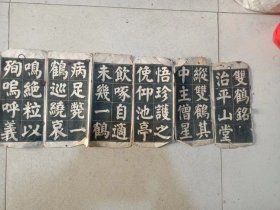 雙鶴銘
治平山堂
縱雙鶴其
中主僧星
悟珍護之
俛仰池亭
飲啄自適
未幾一鶴
病足斃一
鶴巡繞哀
鳴絕粒以
殉嗚呼義